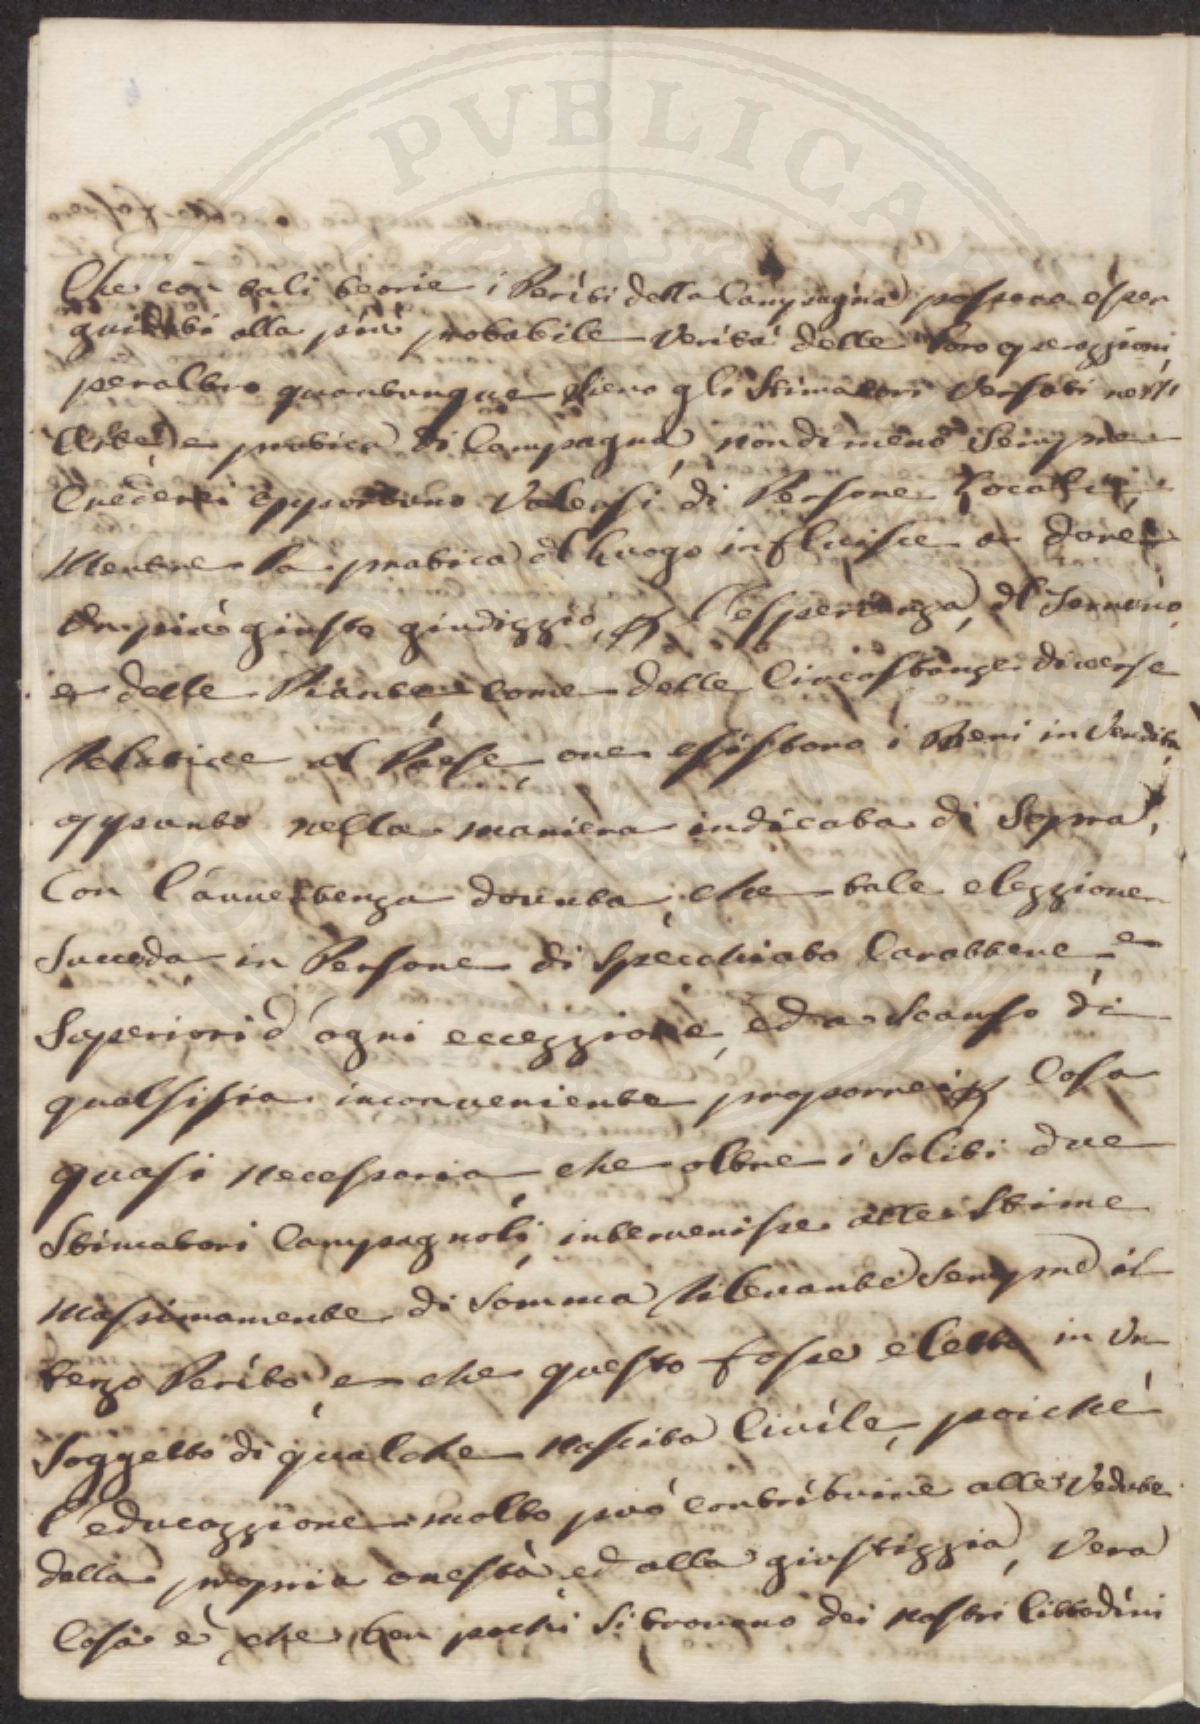 PVBLICA
Che con tali teorie i Periti della Campagna possono esser
guidati alla più probabile verità delle loro operazioni
peraltro quantunque sieno gli Stimatori Versati nell'
Arte, e pratica di Campagna, nondimeno sempre
Crederei opportuno Valersi di Persone Locali,
Mentre la pratica del luogo influisce a dare
un più giusto giudizzio, p l'esperienza, del Terreno,
e delle Piante come delle Circostanze diverse
relative al Paese, ove esistono i Beni in Vendita,
appunto nella maniera indicata di Sopra,
Con l'avvertenza dovuta, che tale elezzione
Succeda in Persone di Specchiato Carattere, e
Superiori d'ogni eccezzione, ed a Scanso di
qualsisia inconveniente proporrei p Cosa
quasi necessaria, che oltre i Soliti due
Stimatori Campagnoli, intervenisse alle Stime
Massimamente di Somma rilevante sempre il
terzo Perito, e che questo fosse eletto in Un
Soggetto di qualche Nascita Civile, poichè
l'educazzione molto può contribuire alle Vedute
della propria onestà ed alla giustizzia, Vera
Cosa è, che ben pochi Si trovano dei Nostri Cittadini